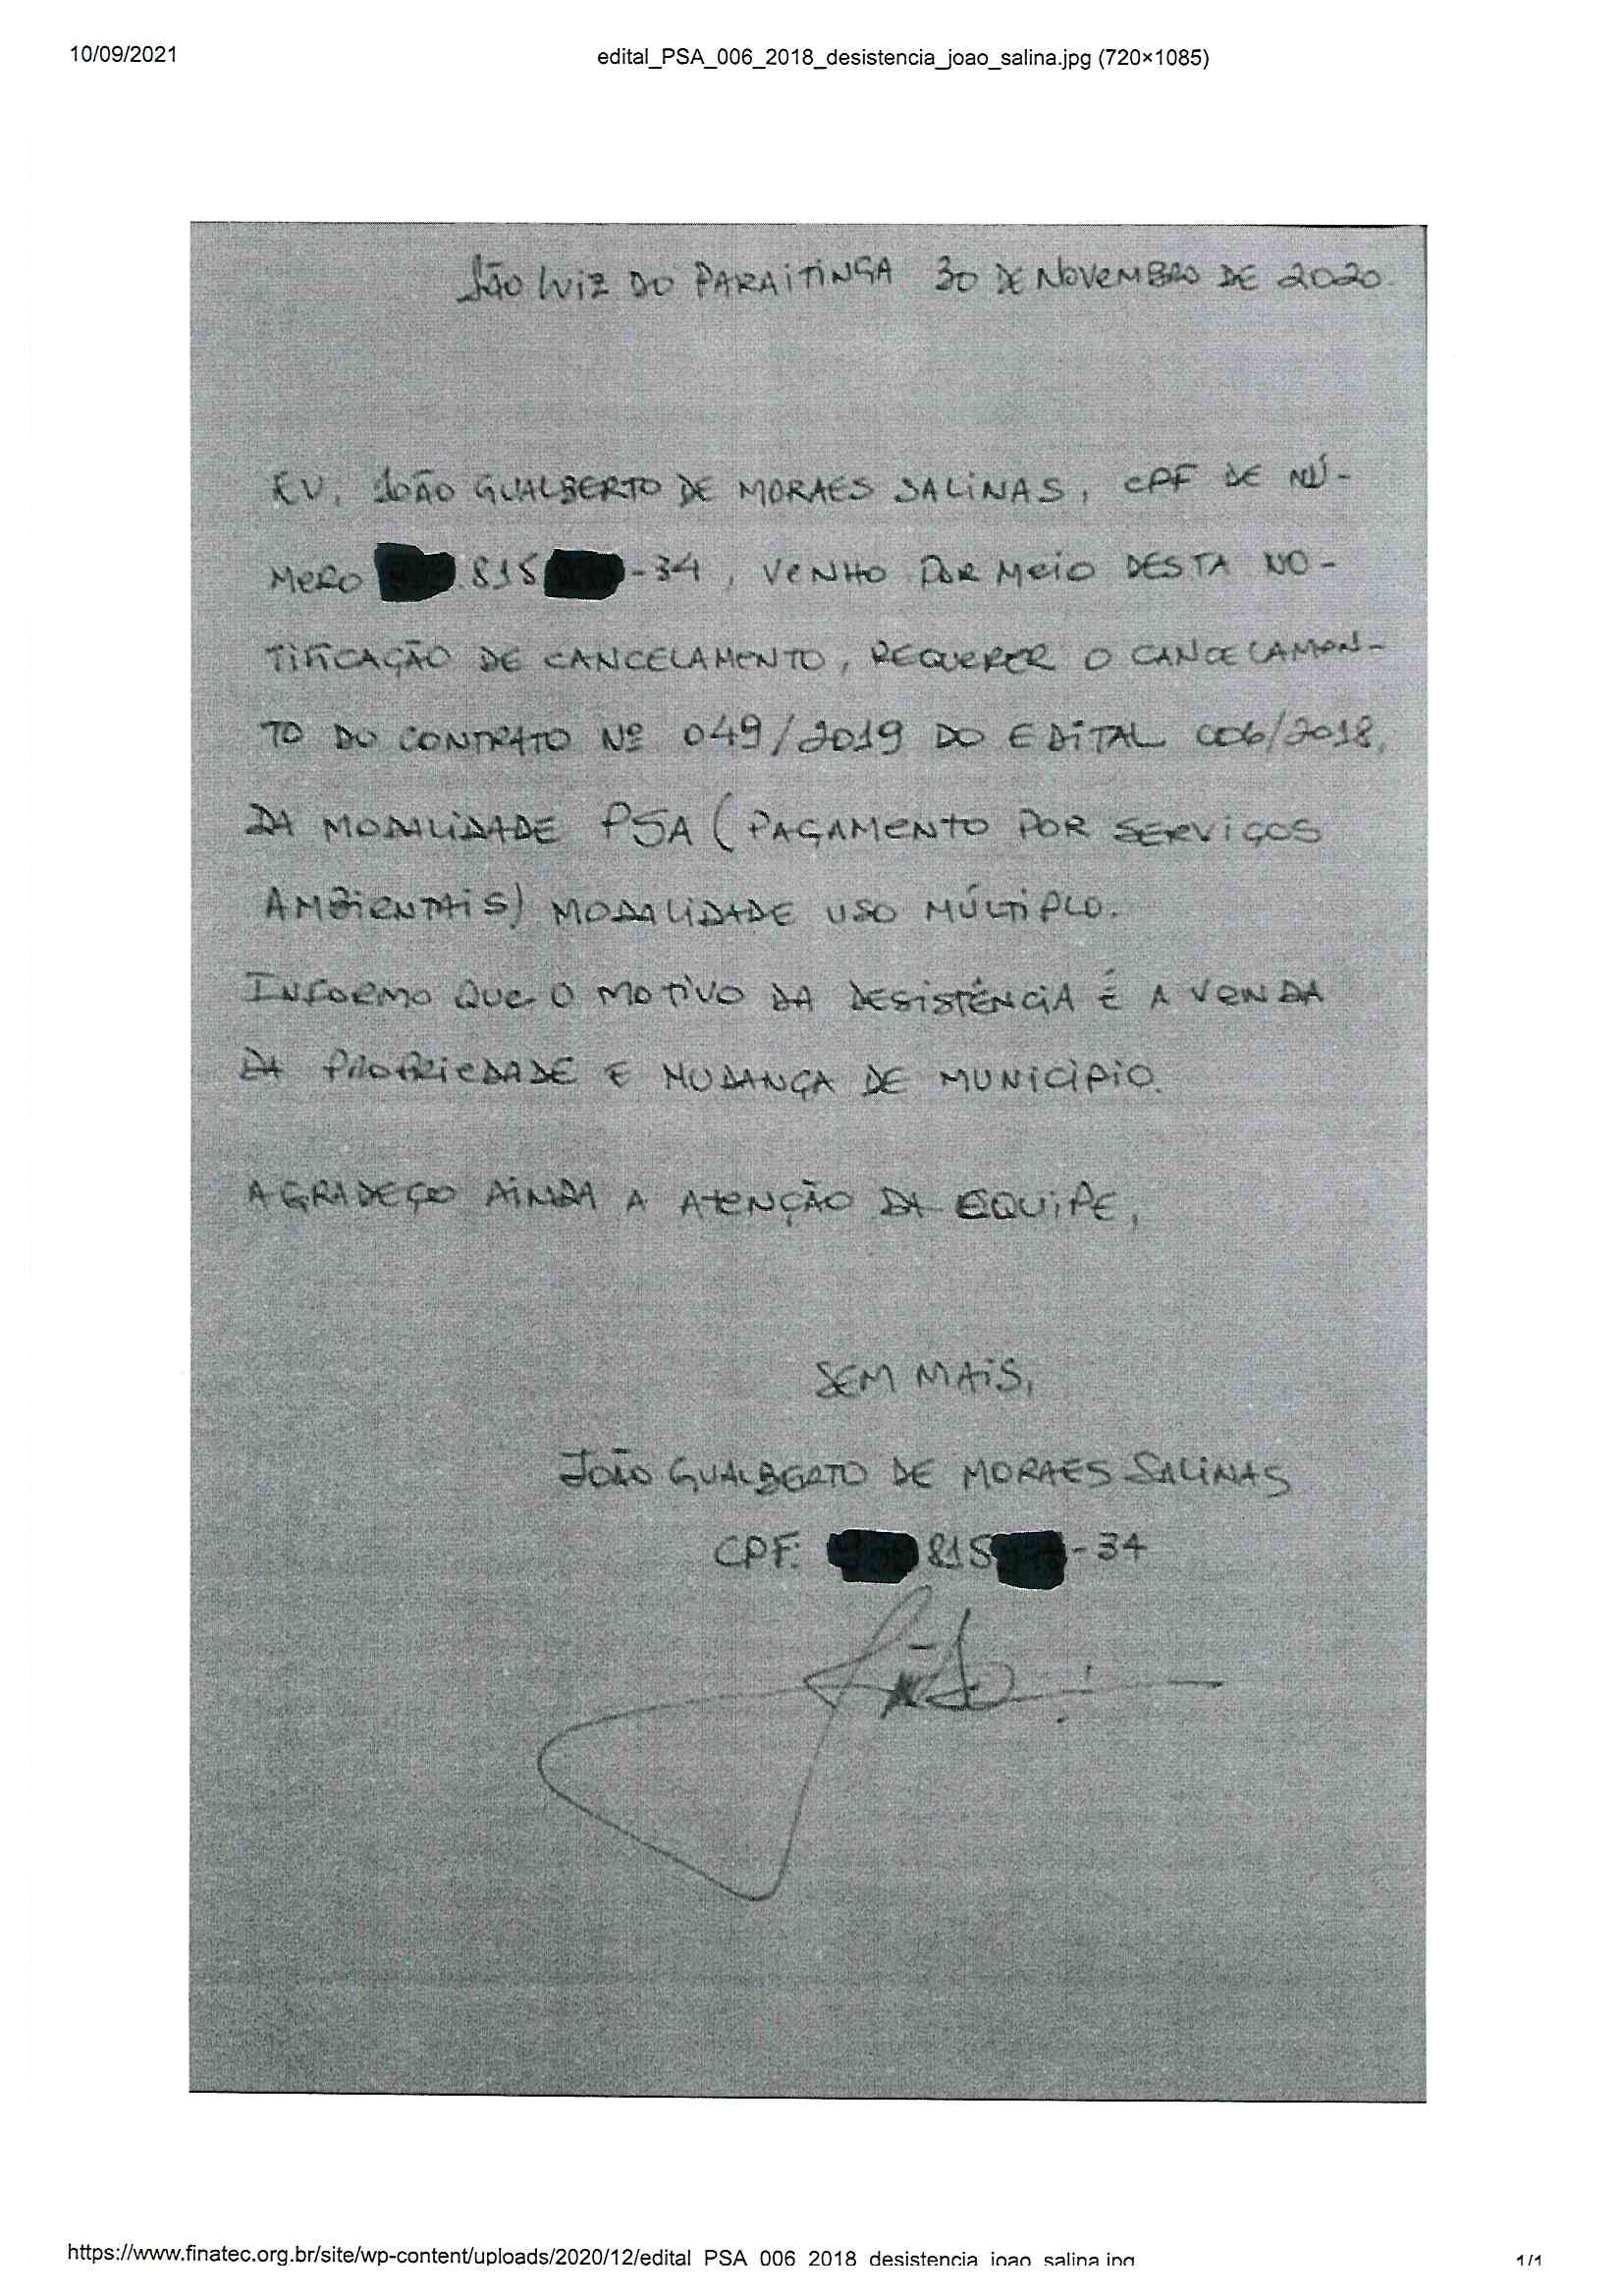 10/09/2021 edital_PSA_006_2018_desistencia_joao_salina.jpg (720×1085)
SÃO LUIZ DO PARAITINGA 30 DE NOVEMBRO DE 2020.
EU, JOÃO GUALBERTO DE MORAES SALINAS, CPF DE NÚ-
MERO .815 -34, VENHO POR MEIO DESTA NO-
TIFICAÇÃO DE CANCELAMENTO, REQUERER O CANCELAMEN-
TO DO CONTRATO Nº 049/2019 DO EDITAL 006/2018,
DA MODALIDADE PSA (PAGAMENTO POR SERVIÇOS
AMBIENTAIS) MODALIDADE USO MÚLTIPLO.
INFORMO QUE O MOTIVO DA DESISTÊNCIA É A VENDA
DA PROPRIEDADE E MUDANÇA DE MUNICIPIO.
AGRADEÇO AINDA A ATENÇÃO DA EQUIPE,
SEM MAIS,
JOÃO GUALBERTO DE MORAES SALINAS
CPF: 815 -34
https://www.finatec.org.br/site/wp-content/uploads/2020/12/edital_PSA_006_2018_desistencia_joao_salina.jpg 1/1